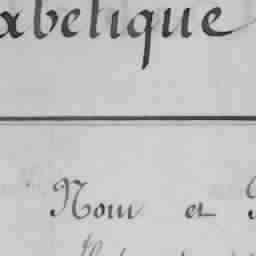 abetique
Nom et